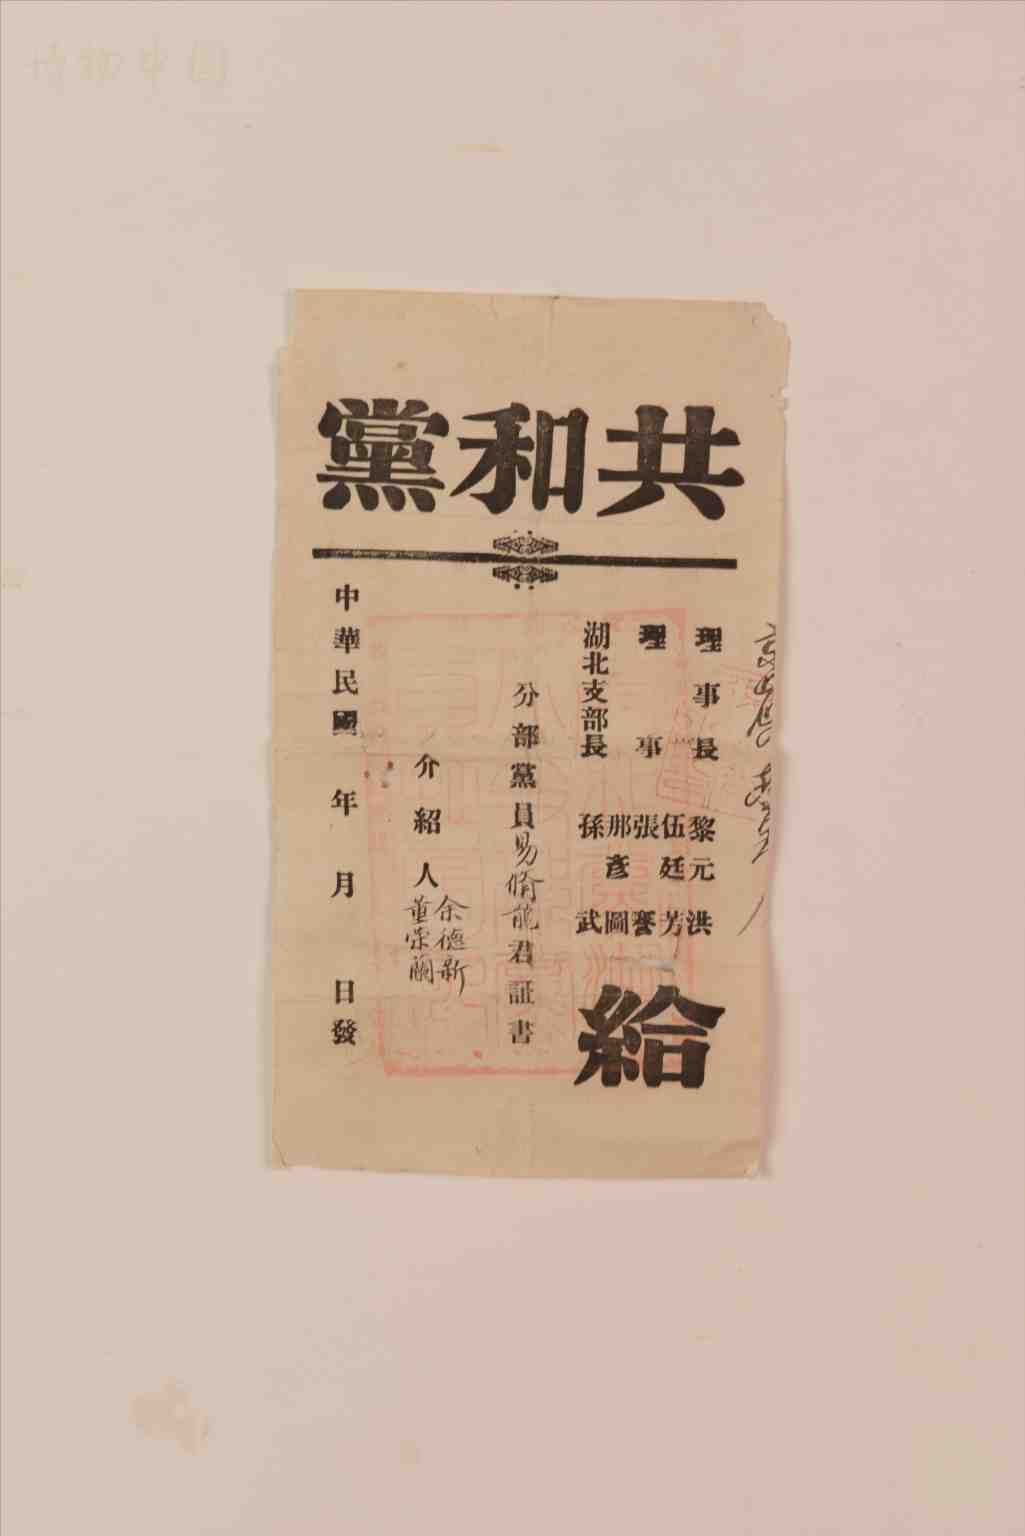 博物中国
共和黨
理事長 黎元洪
理事 伍廷芳
張謇
那彥圖
湖北支部長 孫武
給
分部黨員易脩龍君証書
介紹人 余德新
董榮蘭
中華民國 年 月 日發